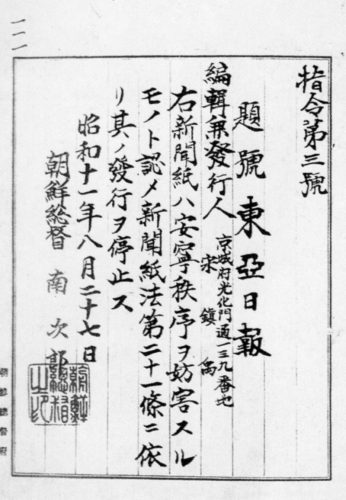 指令第三號
題號 東亞日報
京城府光化門通一三九番地
編輯兼發行人 宋鎭禹
右新聞紙ハ安寧秩序ヲ妨害スル
モノト認メ新聞紙法第二十一條ニ依
リ其ノ發行ヲ停止ス
昭和十一年八月二十七日
朝鮮総督 南次郎
朝鮮總督之印
朝鮮總督府
一一一